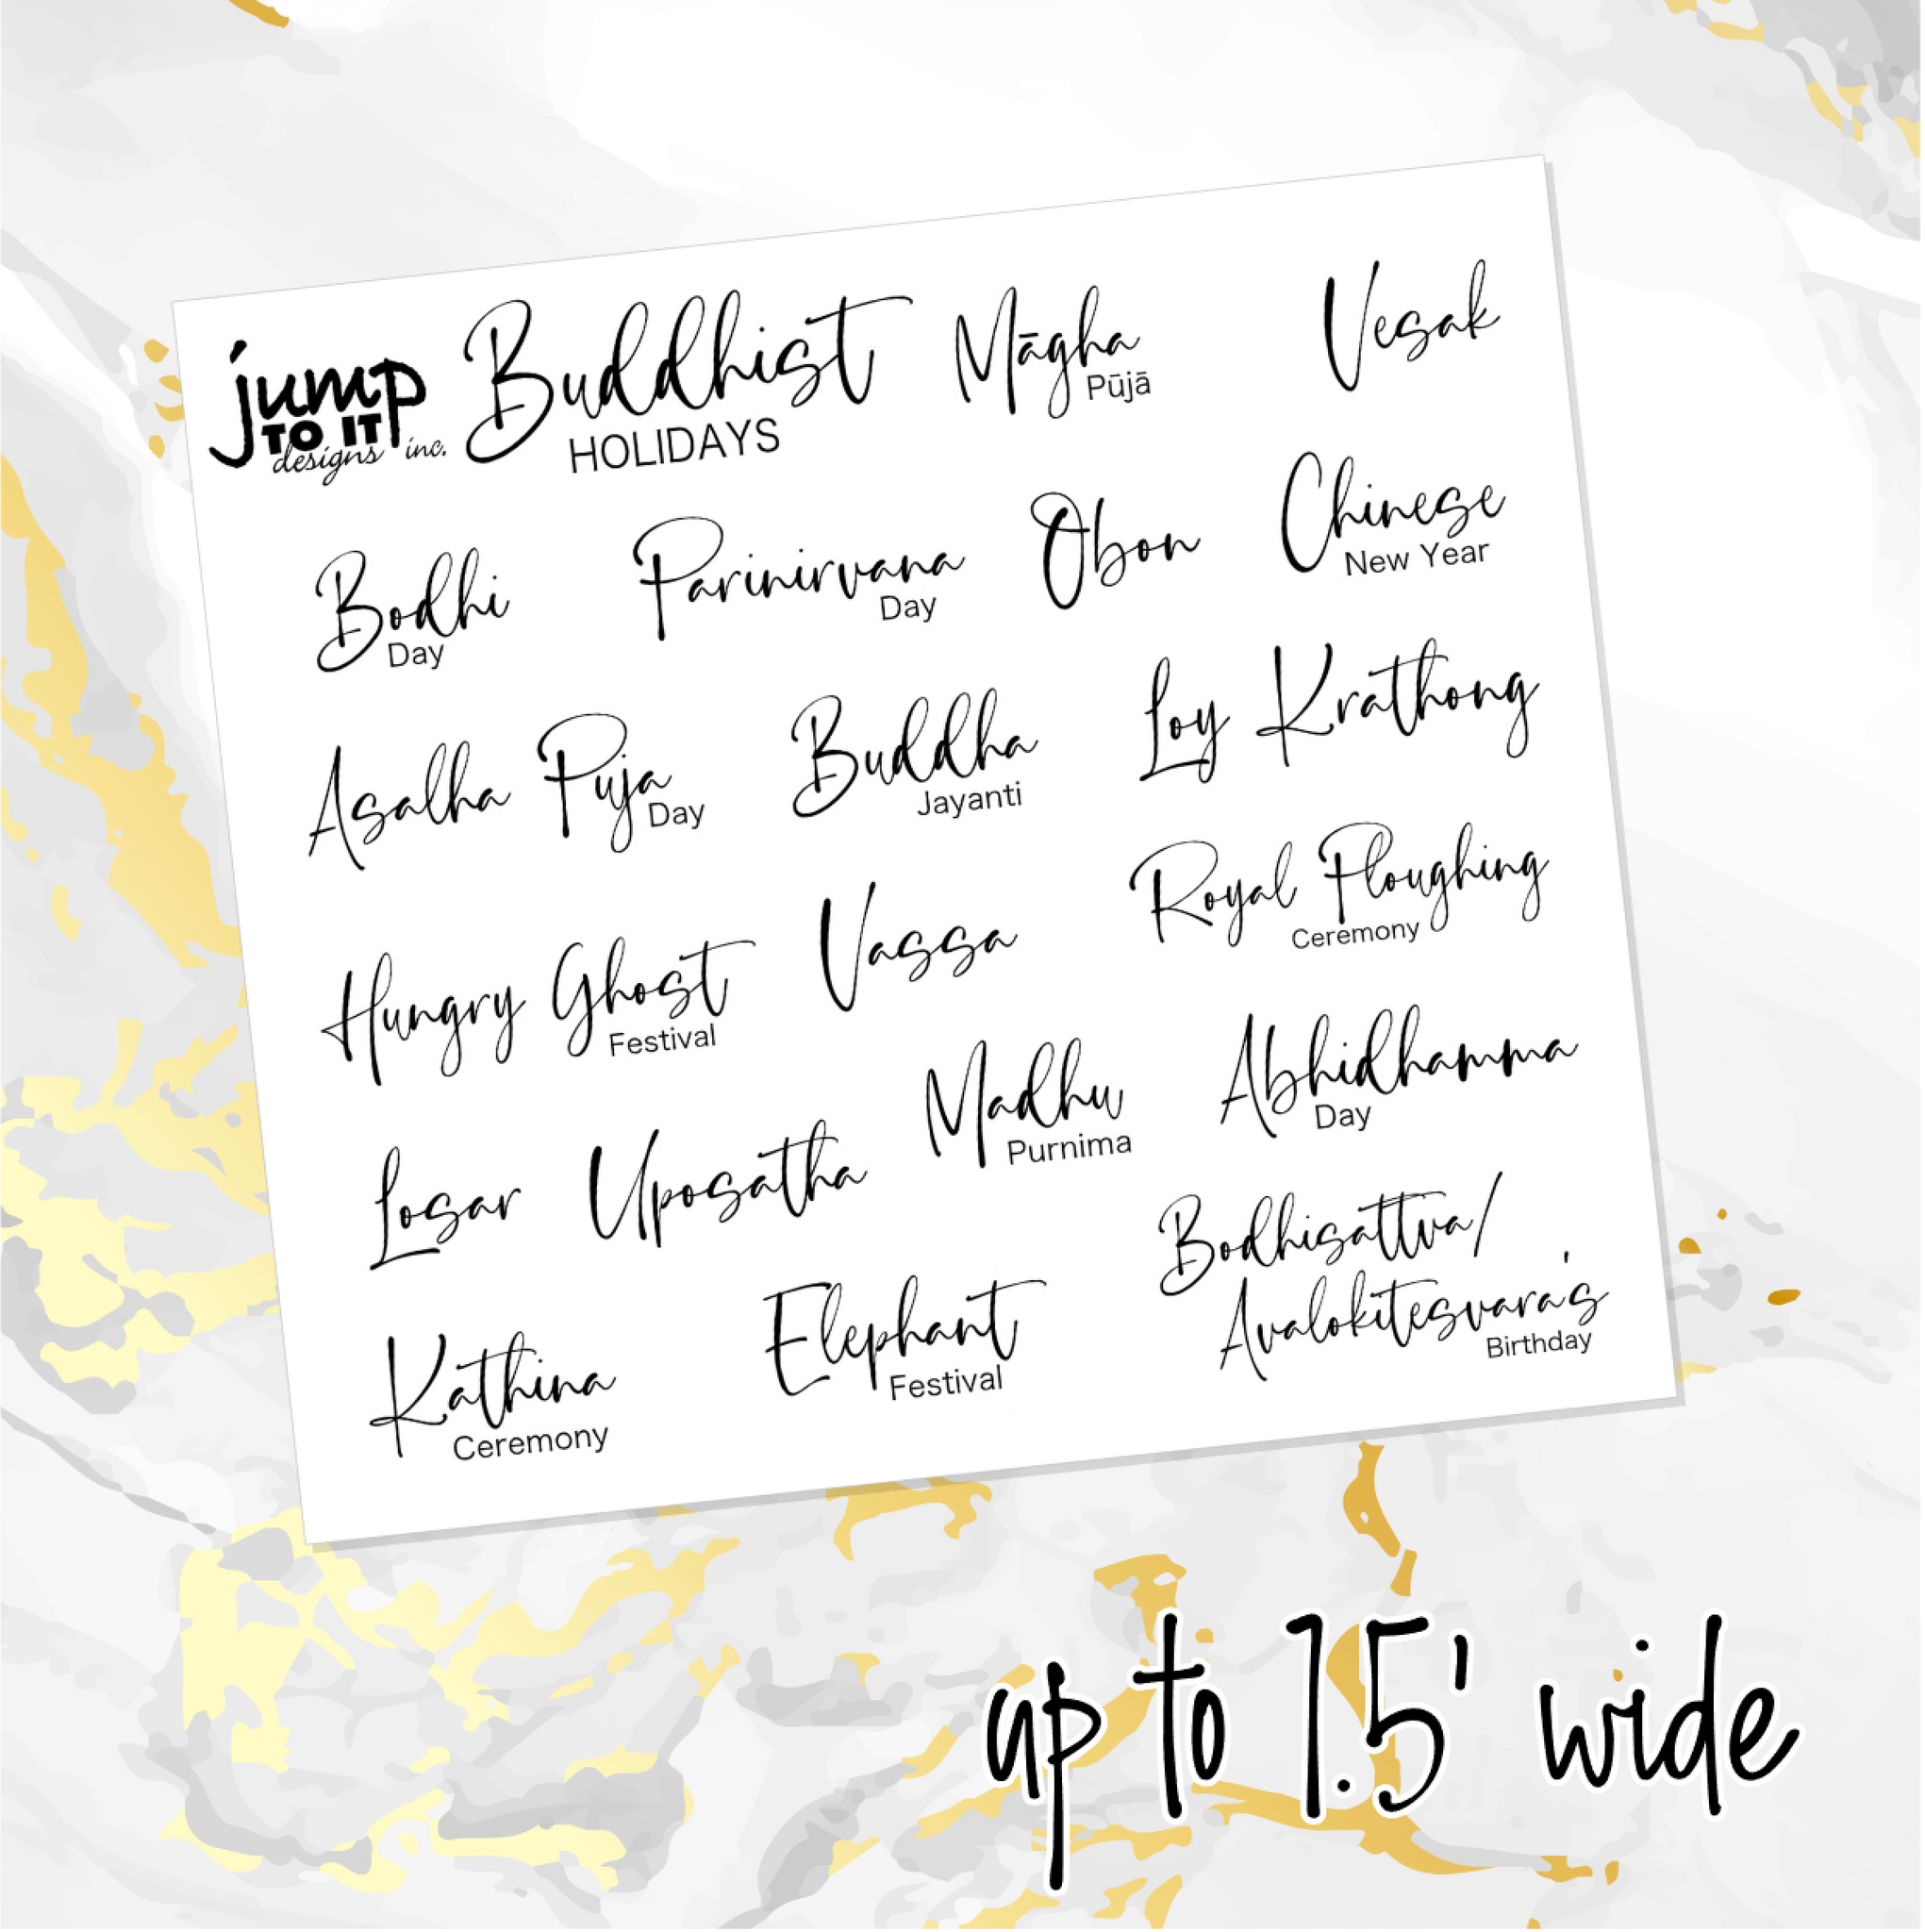 jump
TO IT
designs inc.
Buddhist
HOLIDAYS
Māgha
Pūjā
Vesak
Bodhi
Day
Parinirvana
Day
Obon
Chinese
New Year
Asalha Puja
Day
Buddha
Jayanti
Loy Krathong
Hungry Ghost
Festival
Vassa
Royal Ploughing
Ceremony
Losar
Uposatha
Madhu
Purnima
Abhidhamma
Day
Kathina
Ceremony
Elephant
Festival
Bodhisattva/
Avalokitesvara's
Birthday
up to 1.5' wide